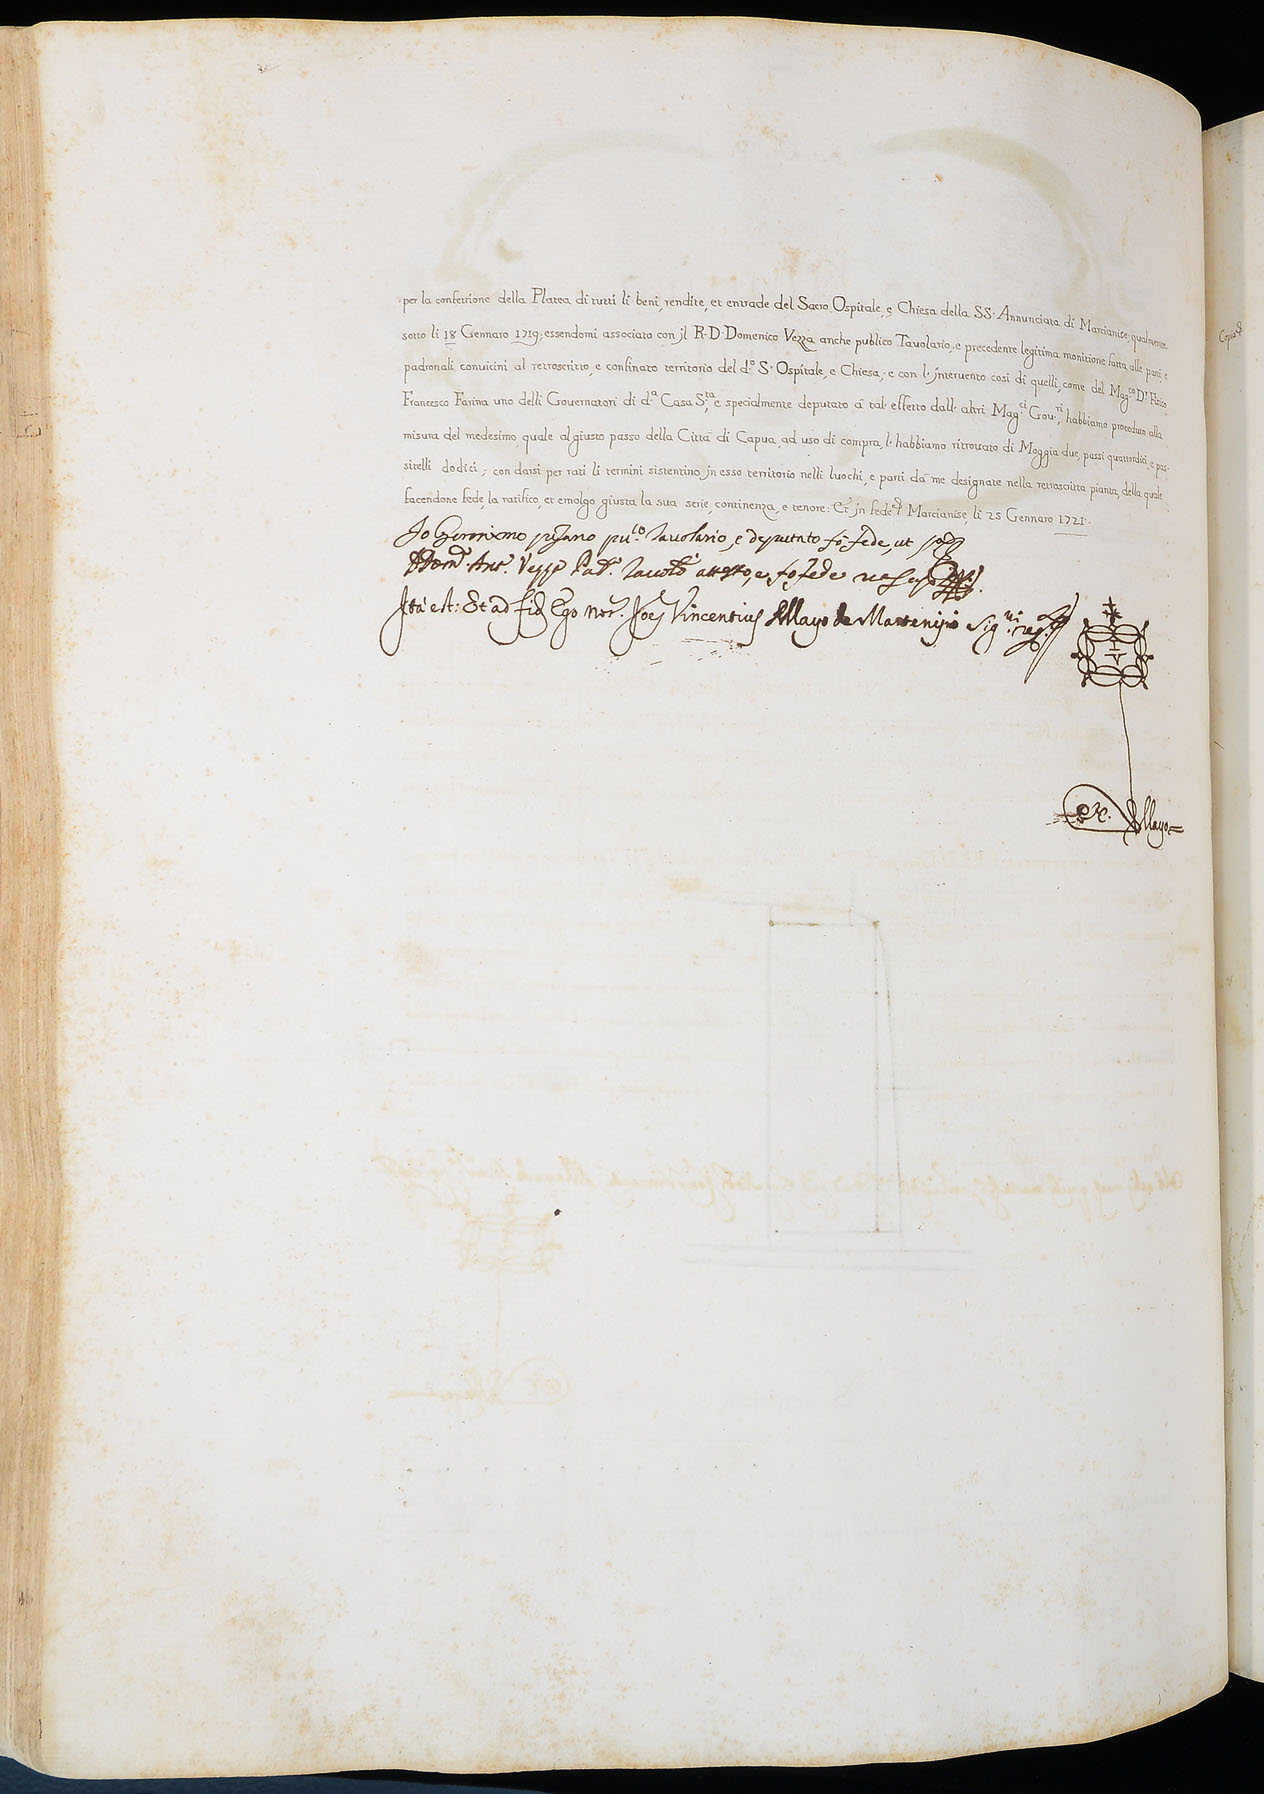 per la confettione della Platea di tutti li beni, rendite, et entrade del Sacro Ospitale, e Chiesa della SS. Annunciata di Marcianise; qualmente
sotto li 18 Gennaro 1719; essendomi associato con jl R. D. Domenico Vezza anche publico Tavolario, e precedente legitima monitione fatta alle parti e
padronali convicini al retroscritto, e confinato territorio del d.º S. Ospitale, e Chiesa, e con l' jntervento così di quelli, come del Mag.co D.r Fisico
Francesco Farina uno delli Governatori di d.ª Casa S.ta, e specialmente deputato à tal effetto dall' altri Mag.ci Gov.ri, habbiamo proceduto alla
misura del medesimo, quale al giusto passo della Città di Capua, ad uso di compra, l' habbiamo ritrovato di Moggia due, passi quattordici, e pas-
sitelli dodici; con darsi per rati li termini sistentino jn esso territorio nelli luochi, e parti da me designate nella retroscritta pianta, della quale
facendone fede, la ratifico, et emolgo giusta la sua serie, continenza, e tenore: Et jn fede Marcianise, li 25 Gennaro 1721.
Io Geronimo pu.co Tavolario, e deputato fò fede, ut
Ant. Vezza attesto, e fò fede ut
Ità est: Et ad fid. Ego Not. Joes Vincentius Mayo de Sig.
Mayo
Copia